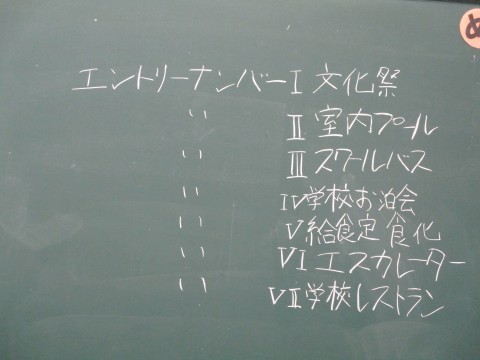 め
エントリーナンバーⅠ 文化祭
〃 Ⅱ 室内プール
〃 Ⅲ スクールバス
〃 Ⅳ 学校お泊会
〃 Ⅴ 給食定食化
〃 Ⅵ エスカレーター
〃 Ⅶ 学校レストラン